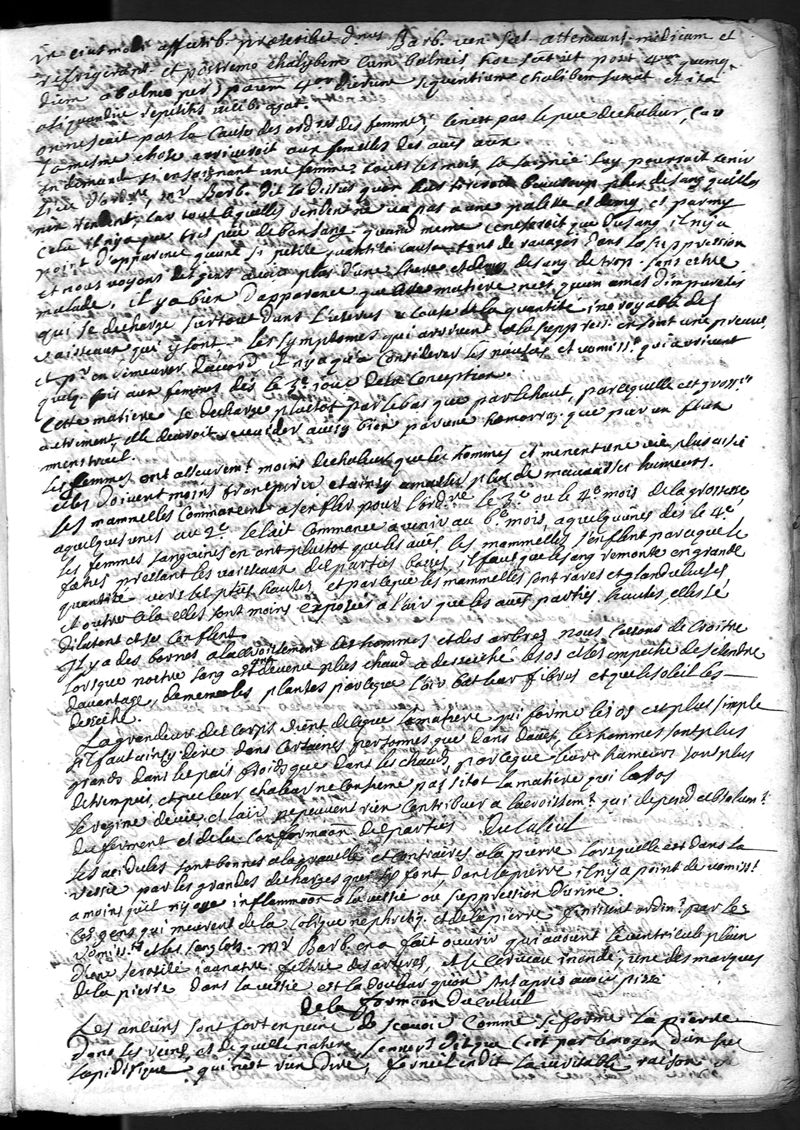 in eiusmodi affectib. praescribet d.nus Barb. ven. sal. attenuans medicam et
refrigerant et postremo chalybem cum balneis hoc
diem a balneo per dierum sequentium chalibem sumat et ita
aliquandiu repetitis vicibus agat.
on ne scait pas la cause des ordres des femmes, ce nest pas le peu de chaleur, car
la mesme chose arriveroit aux femelles des aues aãx
on demande si en seignant une femme touts les mois la saignée luy pourroit tenir
lieu d'ordre, Mr Barb. dit la dessus quon leur tireroit beaucoup plus de sang quelles
nen rendent, car tout le quelles rendent ne va pas a une palette et demy et parmy
cela il ny a que tres peu de bon sang. quand mesme ce ne seroit que du sang, il ny a
point d'apparence quune si petite quantité causa tant de ravages dans la suppression
et nous voyons des gens avoir plus d'une livre et demy de sang de trop sans estre
malade, il y a bien d'apparence que cette matiere nest qu'un amas d'impuretés
qui se decharge surtout dans l'uterus a cause de la quantité incroyable des
vaisseaux qui y sont. les symptomes qui arrivent a la suppress. en sont une preuve,
et pr en demeurer d'acord il ny a qu'a considerer les nausées et vomiss.t qui arrivent
quelq. fois aux femmes des le 3.e jour de la conception.
Cette matiere se decharge plustot par le bas que par le haut, par ce quelle est gross.re
autrement elle devroit se vuider aussy bien par une hemorrag. que par un flux
menstruel.
Les femmes ont asseurem.t moins de chaleur que les hommes et menent une vie plus aisée
elles doivent moins transpirer et ainsy amasser plus de mauvaises humeurs.
Les mammelles commencent a s'enfler pour l'ord.re le 3.e ou le 4.e mois de la grossesse
a quelques unes au 2.e le lait commance a venir au 6.e mois, a quelqu'unes dès le 4.e
Les femmes sanguines en ont plustot que les aues. les mammelles s'enflent par ce que le
fœtus pressant les vaisseaux des parties basses, il faut que le sang remonte en grande
quantité vers les plus hautes, et par ce que les mammelles sont rares et glanduleuses
et outre cela elles sont moins exposées a l'air que les aues parties hautes, elles se
dilatent et se gonflent.
Il y a des bornes a l'accroissement des hommes et des arbres nous cessons de croitre
lorsque nostre sang estant devenu plus chaud a desseiché les os et les empeche de s'etendre
davantage, de meme les plantes par ce que l'air bat leur fibres et que le soleil les
deseche.
La grandeur des corps vient de ce que la matiere qui forme les os est plus simple
Il faut ainsy dire dans certaines personnes que dans d'aues, les hommes sont plus
grands dans les païs froids que dans les chauds par ce que leurs humeurs sont plus
detrempées, et que leur chaleur ne consume pas si tot la matiere qui les os
Le regime de vie et l'air ne peuvent rien contribuer a l'acroissem.t qui depend absolum.t
du ferment et de la conformãon des parties Du Calcul
Les acidules sont bonnes a la gravelle et contraires a la pierre lors quelle est dans la
vessie par les grandes decharges qui se font, dans la pierre il ny a point de vomiss.t
a moins qu'il ny aye inflammãon a la vessie ou suppression d'urine.
Les gens qui meurent de la colique nephretiq. et de la pierre finissent ordin.t par les
vomiss.ts et les sanglots. Mr Barb. en a fait ouvrir qui avoient le ventricule plein
d'une serosité jaunatre filtrée des arteres, et le cerveau inondé, une des marques
de la pierre dans la vessie est la douleur quon sent apres avoir pissé
De la formãon du calcul
Les anciens sont fort en peine de scavoir comme se forme la pierre
dans les reins, et de quelle nature, Sennert dit que c'est par le moyen d'un suc
lapidifique, qui n'est rien dire, fernel en dit la veritable raison